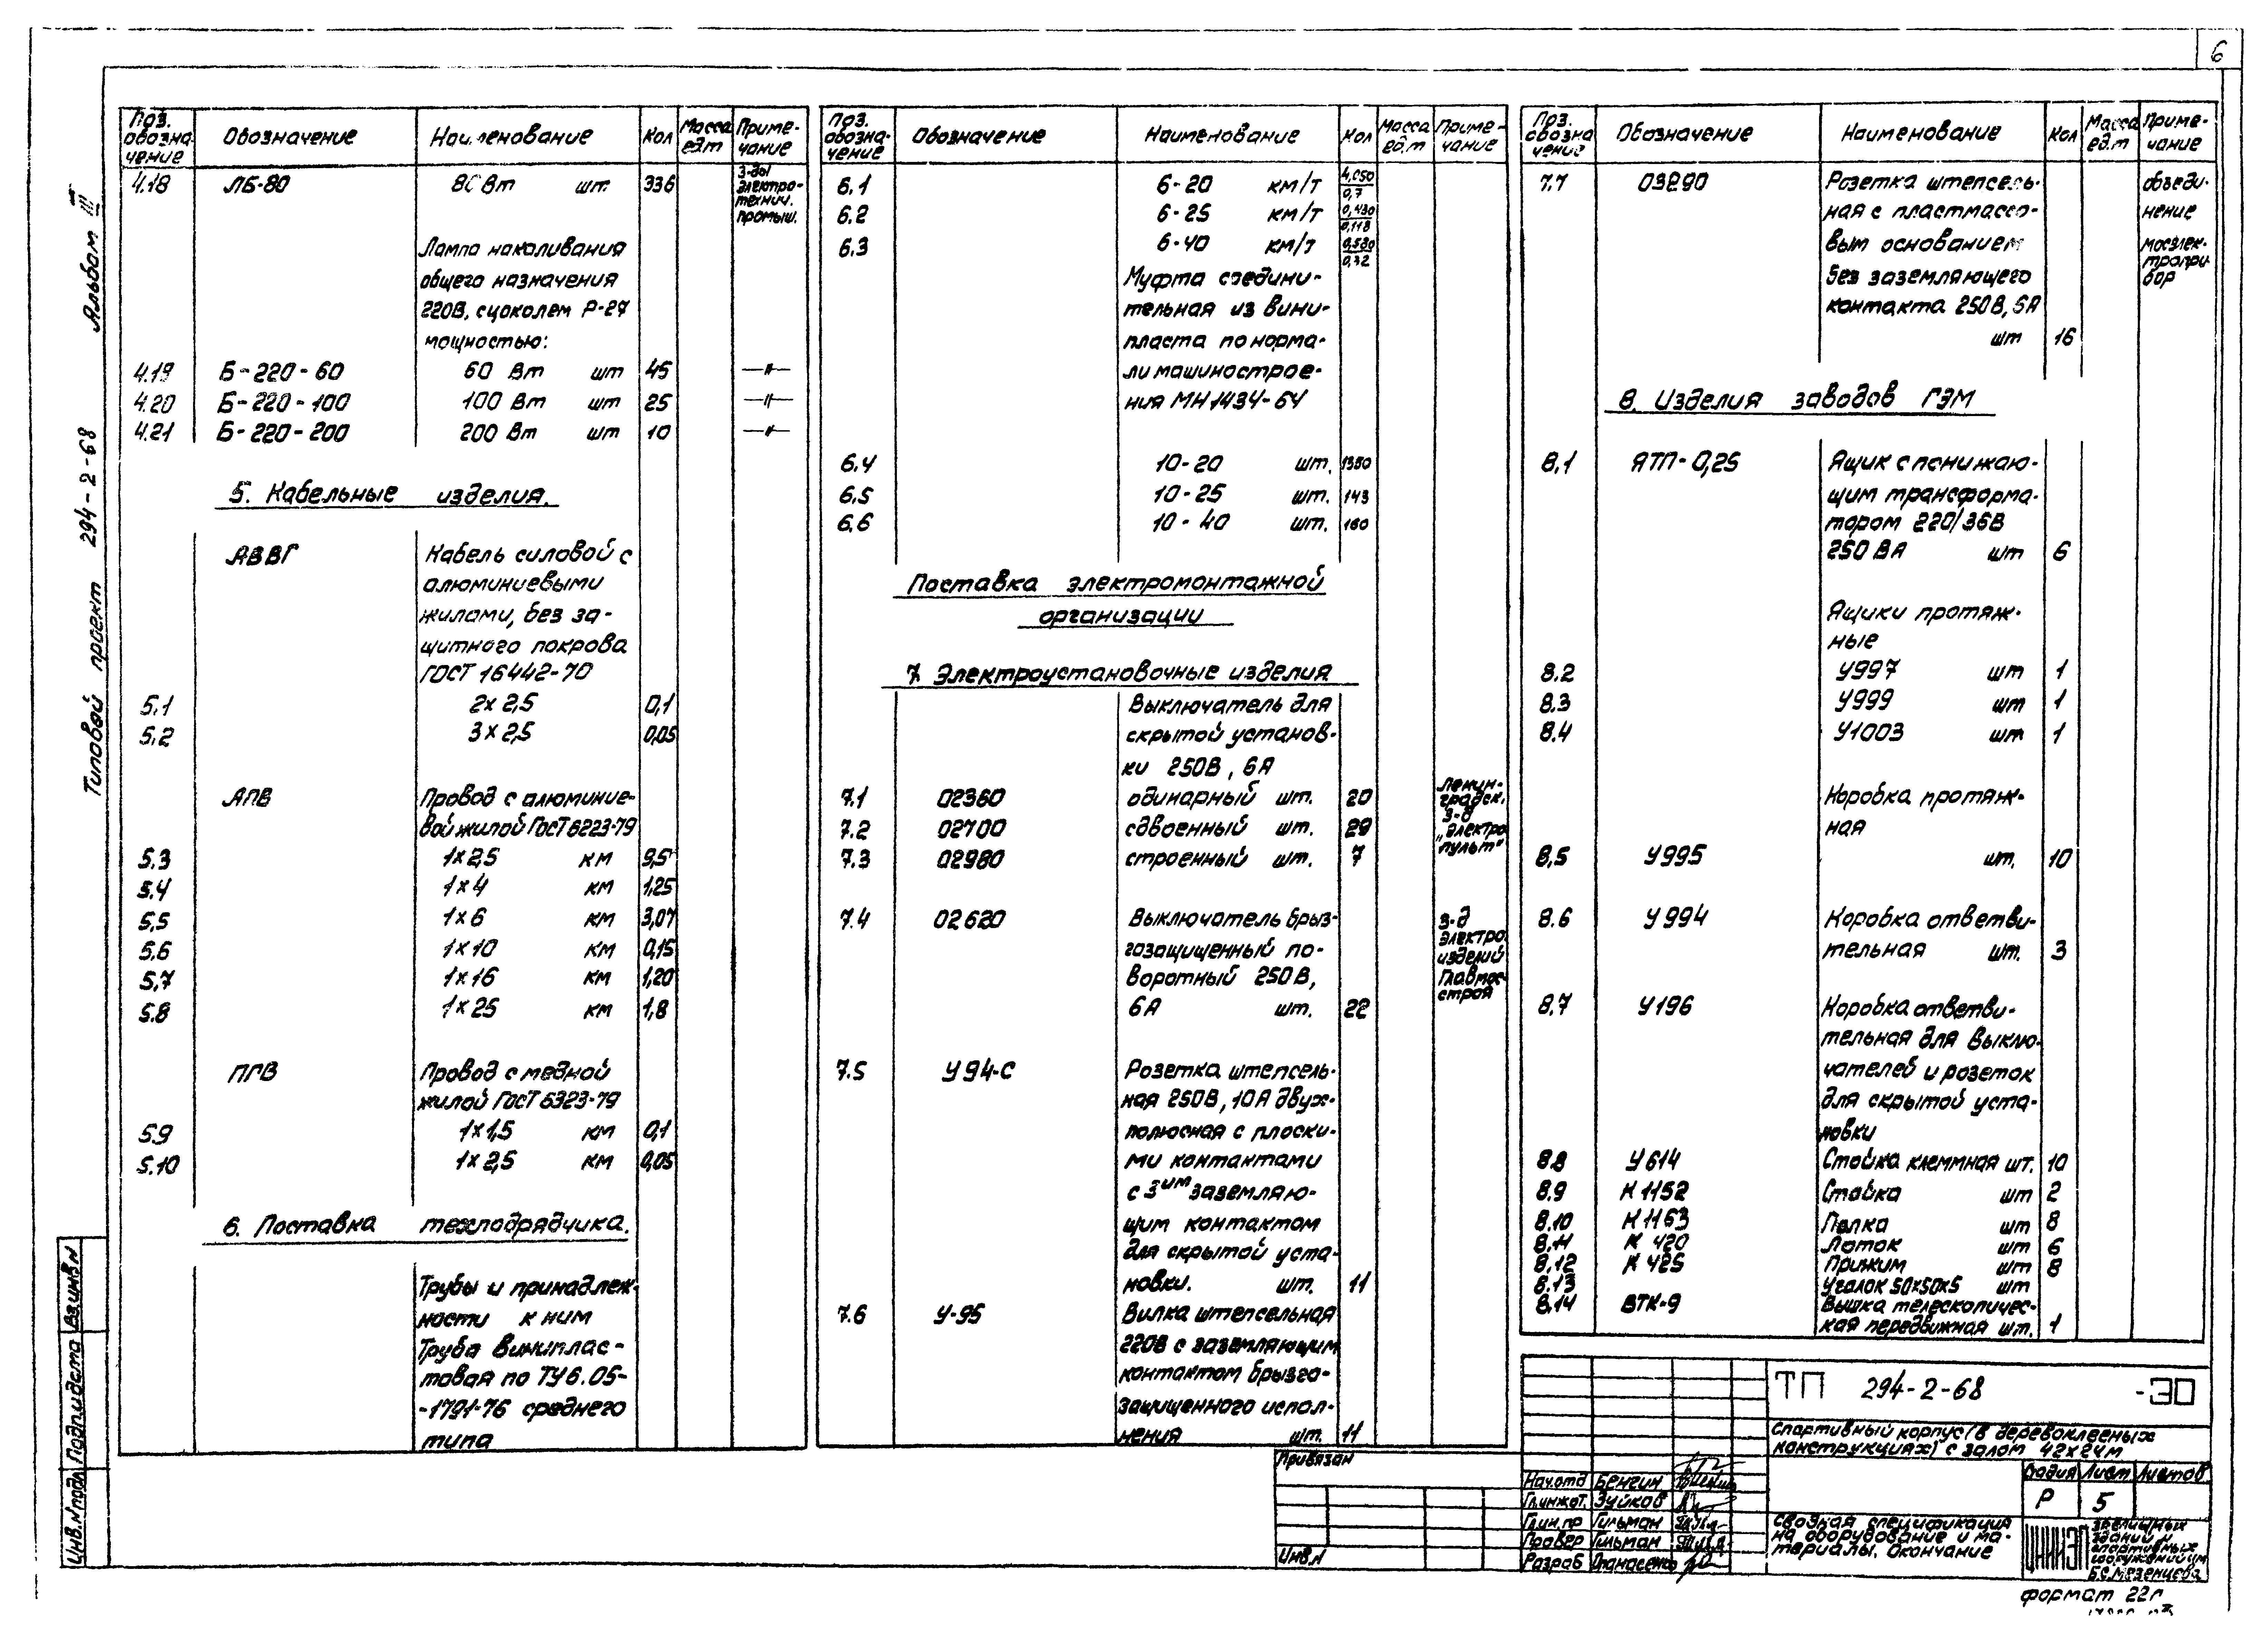 6
Альбом III
Типовой проект 294-2-68
Поз. обозна- чение Обозначение Наименование Кол Масса ед.т Приме- чание
4.18 ЛБ-80 80 Вт шт. 336 з-ды электро- технич. промыш.
Лампа накаливания
общего назначения
220В, с цоколем Р-27
мощностью:
4.19 Б-220-60 60 Вт шт 45 —"—
4.20 Б-220-100 100 Вт шт 25 —"—
4.21 Б-220-200 200 Вт шт 10 —"—
5. Кабельные изделия.
АВВГ Кабель силовой с
алюминиевыми
жилами, без за-
щитного покрова
ГОСТ 16442-70
5.1 2×2,5 0,1
5.2 3×2,5 0,05
АПВ Провод с алюминие-
вой жилой ГОСТ 6223-79
5.3 1×2,5 км 9,5
5.4 1×4 км 1,25
5.5 1×6 км 3,07
5.6 1×10 км 0,15
5.7 1×16 км 1,20
5.8 1×25 км 1,8
ПГВ Провод с медной
жилой ГОСТ 6323-79
5.9 1×1,5 км 0,1
5.10 1×2,5 км 0,05
6. Поставка генподрядчика.
Трубы и принадлеж-
ности к ним
Труба виниплас-
товая по ТУ6.05-
-1791-76 среднего
типа
Поз. обозна- чение Обозначение Наименование Кол Масса ед.т Приме- чание
6.1 6-20 км/т 4,050/0,7
6.2 6-25 км/т 0,430/0,118
6.3 6-40 км/т 0,580/0,32
Муфта соедини-
тельная из вини-
пласта по норма-
ли машинострое-
ния МН 1434-64
6.4 10-20 шт. 1350
6.5 10-25 шт. 143
6.6 10-40 шт. 160
Поставка электромонтажной
организации
7. Электроустановочные изделия
Выключатель для
скрытой установ-
ки 250В, 6А
7.1 02360 одинарный шт. 20 Ленин- градск. з-д „Электро пульт"
7.2 02700 сдвоенный шт. 29
7.3 02980 строенный шт. 7
7.4 02620 Выключатель брыз- з-д
гозащищенный по- электро изделий
воротный 250В, Главмос-
6А шт. 22 строя
7.5 У94-С Розетка штепсель-
ная 250В, 10А двух-
полюсная с плоски-
ми контактами
с 3им заземляю-
щим контактом
для скрытой уста-
новки. шт. 11
7.6 У-95 Вилка штепсельная
220В с заземляющим
контактом брызго-
защищенного испол-
нения шт. 11
Поз. обозна чение Обозначение Наименование Кол Масса ед.т Приме- чание
7.7 03290 Розетка штепсель- объеди-
ная с пластмассо- нение
вым основанием мосэлек-
без заземляющего тропри бор
контакта 250В, 6А
шт 16
8. Изделия заводов ГЭМ
8.1 ЯТП-0,25 Ящик с понижаю-
щим трансформа-
тором 220/36В
250 ВА шт 6
Ящики протяж-
ные
8.2 У997 шт 1
8.3 У999 шт 1
8.4 У1003 шт 1
Коробка протяж-
ная
8.5 У995 шт. 10
8.6 У994 Коробка ответви-
тельная шт. 3
8.7 У196 Коробка ответви-
тельная для выклю-
чателей и розеток
для скрытой уста-
новки
8.8 У614 Стойка клеммная шт. 10
8.9 К1152 Стойка шт 2
8.10 К1163 Полка шт 8
8.11 К 420 Лоток шт 6
8.12 К 425 Прижим шт 8
8.13 Уголок 50×50×5 шт
8.14 ВТК-9 Вышка телескопичес-
кая передвижная шт. 1
ТП 294-2-68 -ЭО
Спортивный корпус (в деревоклееных
конструкциях) с залом 42×24м
Стадия Лист Листов
Р 5
Сводная спецификация
на оборудование и ма-
териалы. Окончание
ЦНИИЭП зрелищных
зданий и
спортивных
сооружений им
Б.С. Мезенцева
Привязан
Инв.N
Нач.отд Бенгин
Гл.инж.от. Зуйков
Гл.ин.пр Гильман
Провер Гильман
Разраб
формат 22г
Взинв N
Подп. и дата
Инв. N подл